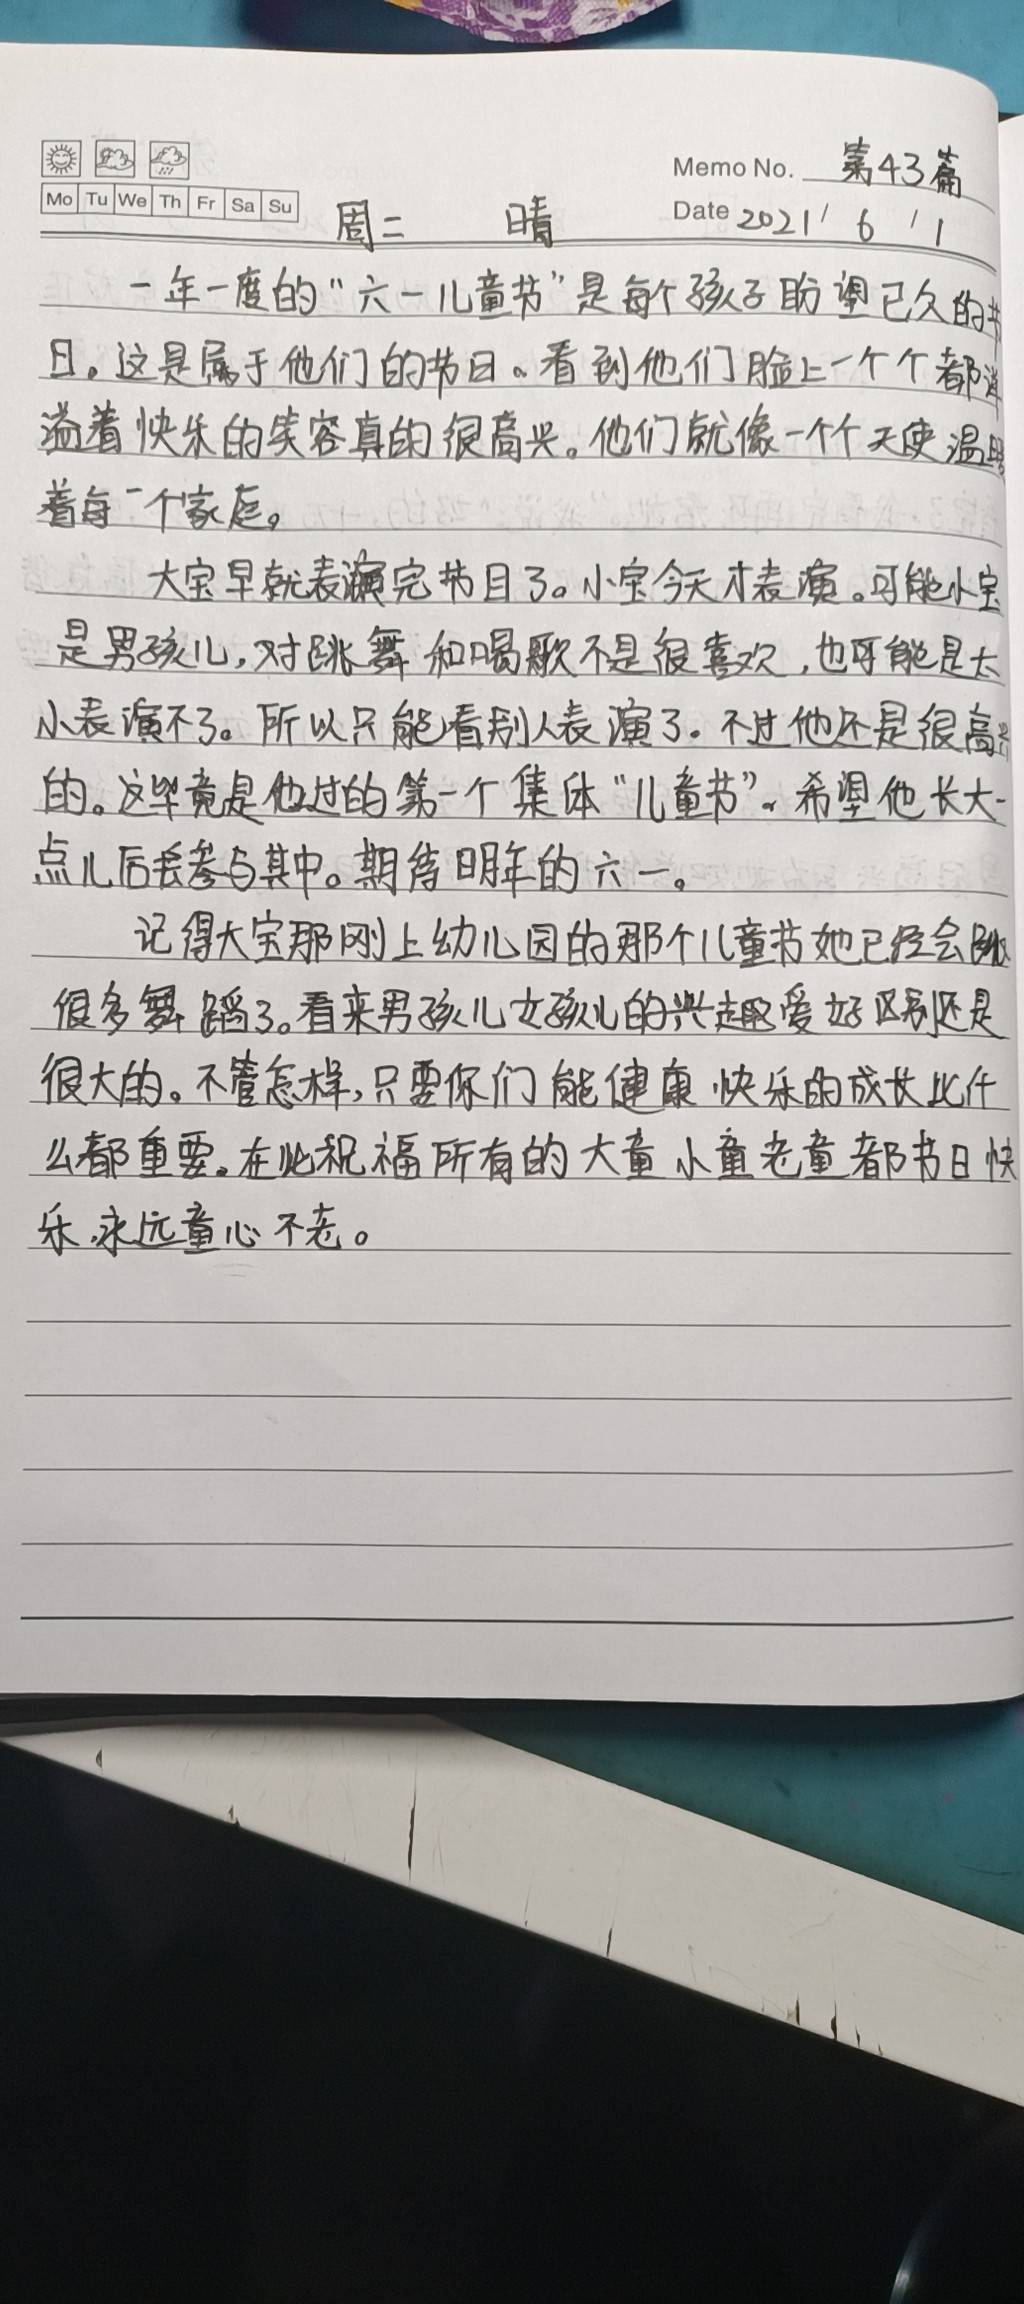 Memo No. 第43篇
Mo Tu We Th Fr Sa Su
周二 晴 Date 2021/6/1
一年一度的“六一儿童节”是每个孩子盼望已久的节
日。这是属于他们的节日。看到他们脸上一个个都洋
溢着快乐的笑容真的很高兴。他们就像一个个天使温暖
着每一个家庭。
大宝早就表演完节目了。小宝今天才表演。可能小宝
是男孩儿,对跳舞和唱歌不是很喜欢,也可能是太
小表演不了。所以只能看别人表演了。不过他还是很高兴
的。这毕竟是他过的第一个集体“儿童节”。希望他长大一
点儿后去参与其中。期待明年的六一。
记得大宝那刚上幼儿园的那个儿童节她已经会跳
很多舞蹈了。看来男孩儿女孩儿的兴趣爱好区别还是
很大的。不管怎样,只要你们能健康快乐的成长比什
么都重要。在此祝福所有的大童小童老童都节日快
乐,永远童心不老。